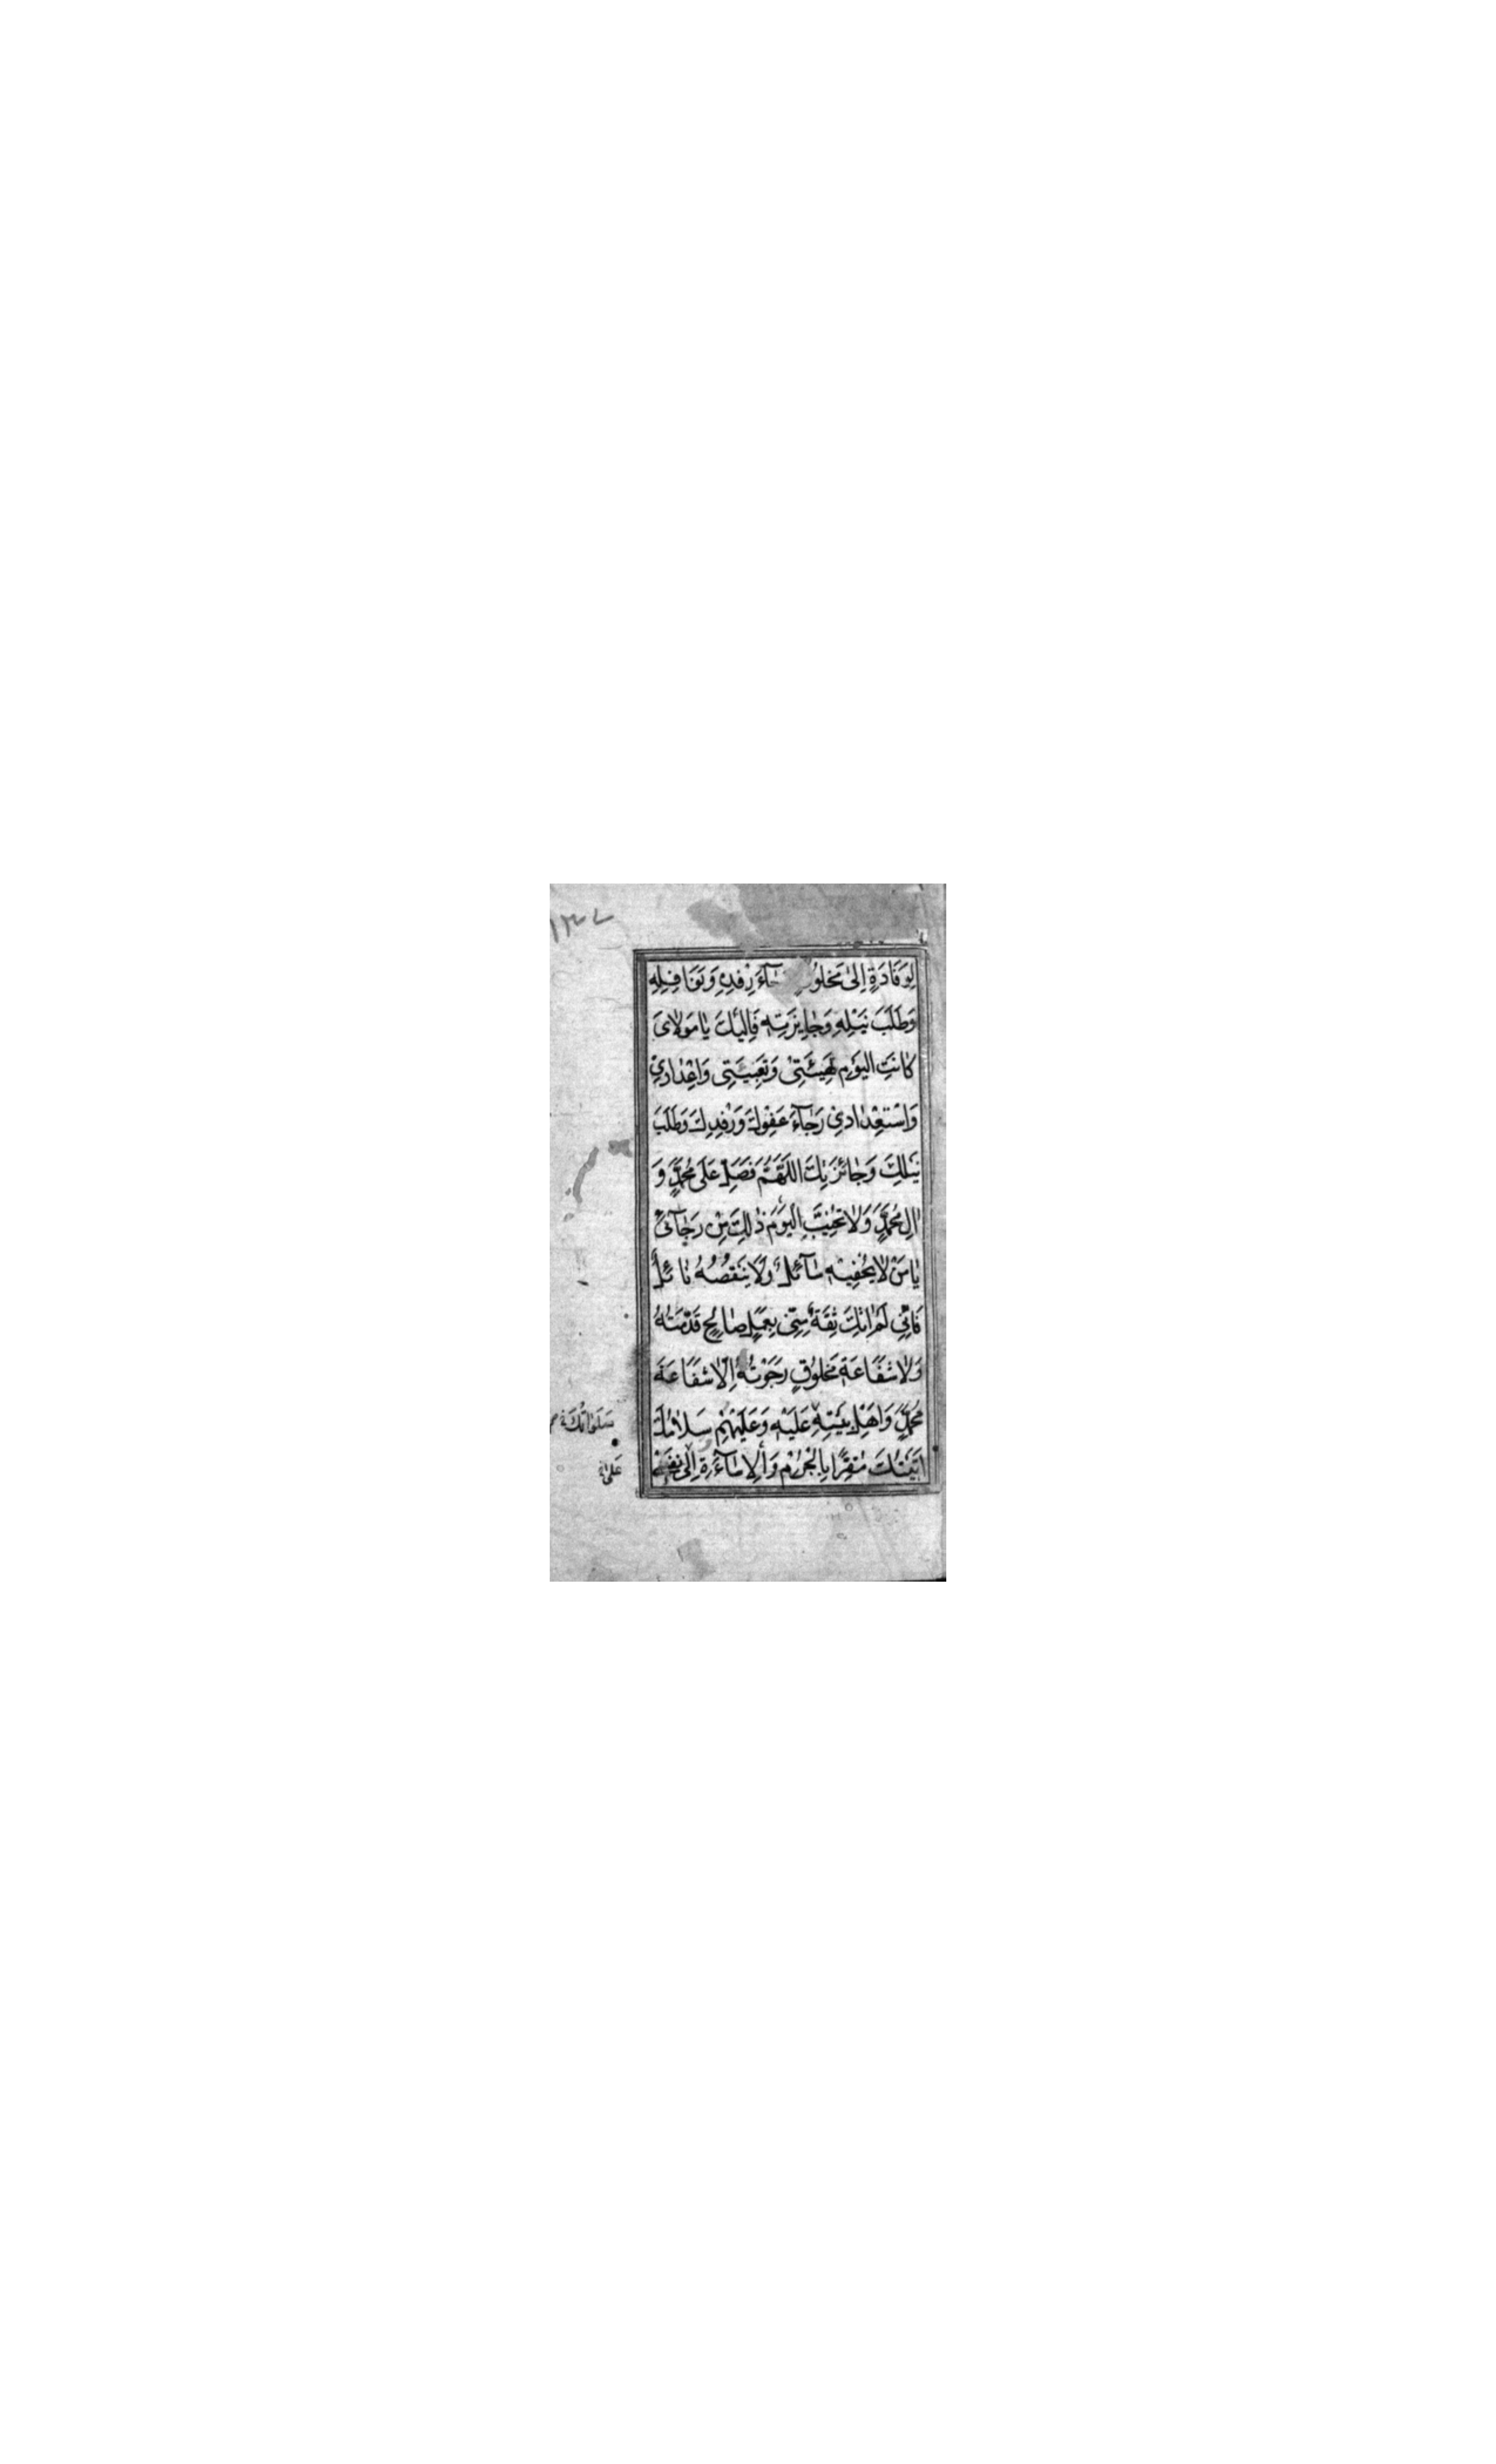 لِوَفَادَةٍ اِلىٰ مَخْلُوقٍ رَجَآءَ رِفْدِهِ وَنَوَافِلِهِ
وَطَلَبَ نَيْلِهِ وَجَايِزَتِهِ فَاِلَيْكَ يَا مَوْلَايَ
كَانَتِ الْيَوْمَ تَهْيِئَتِي وَتَعْبِيَتِي وَاِعْدَادِي
وَاسْتِعْدَادِي رَجَآءَ عَفْوِكَ وَرِفْدِكَ وَطَلَبَ
نَيْلِكَ وَجَائِزَتِكَ اَللّٰهُمَّ فَصَلِّ عَلىٰ مُحَمَّدٍ وَ
اٰلِ مُحَمَّدٍ وَلَا تُخَيِّبِ الْيَوْمَ ذٰلِكَ مِنْ رَجَآئِي
يَا مَنْ لَا يُحْفِيهِ سَآئِلٌ وَلَا يَنْقُصُهُ نَائِلٌ
فَاِنِّي لَمْ اٰتِكَ ثِقَةً مِنِّي بِعَمَلٍ صَالِحٍ قَدَّمْتُهُ
وَلَا شَفَاعَةِ مَخْلُوقٍ رَجَوْتُهُ اِلَّا شَفَاعَةَ
مُحَمَّدٍ وَاَهْلِ بَيْتِهِ عَلَيْهِ وَعَلَيْهِمْ سَلَامُكَ
اَتَيْتُكَ مُقِرًّا بِالْجُرْمِ وَالْاِسَآءَةِ اِلىٰ نَفْسِي